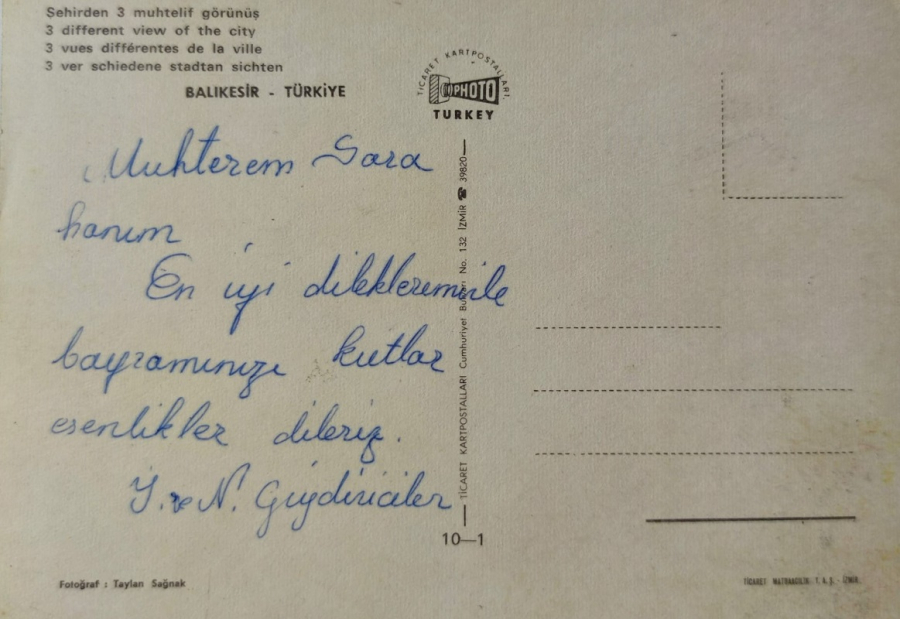 Şehirden 3 muhtelif görünüş
3 different view of the city
3 vues différentes de la ville
3 ver schiedene stadtan sichten
BALIKESİR - TÜRKİYE
TİCARET KARTPOSTALLARI
PHOTO
TURKEY
Muhterem Sara
hanım
En iyi dileklerimizle
bayramınızı kutlar
esenlikler dileriz.
Y. ve N. Giydiriciler
TİCARET KARTPOSTALLARI Cumhuriyet No. 132 İZMİR ☎ 39820
10—1
Fotoğraf : Taylan Sağnak
TİCARET MATBAACILIK T. A. Ş. - İZMİR